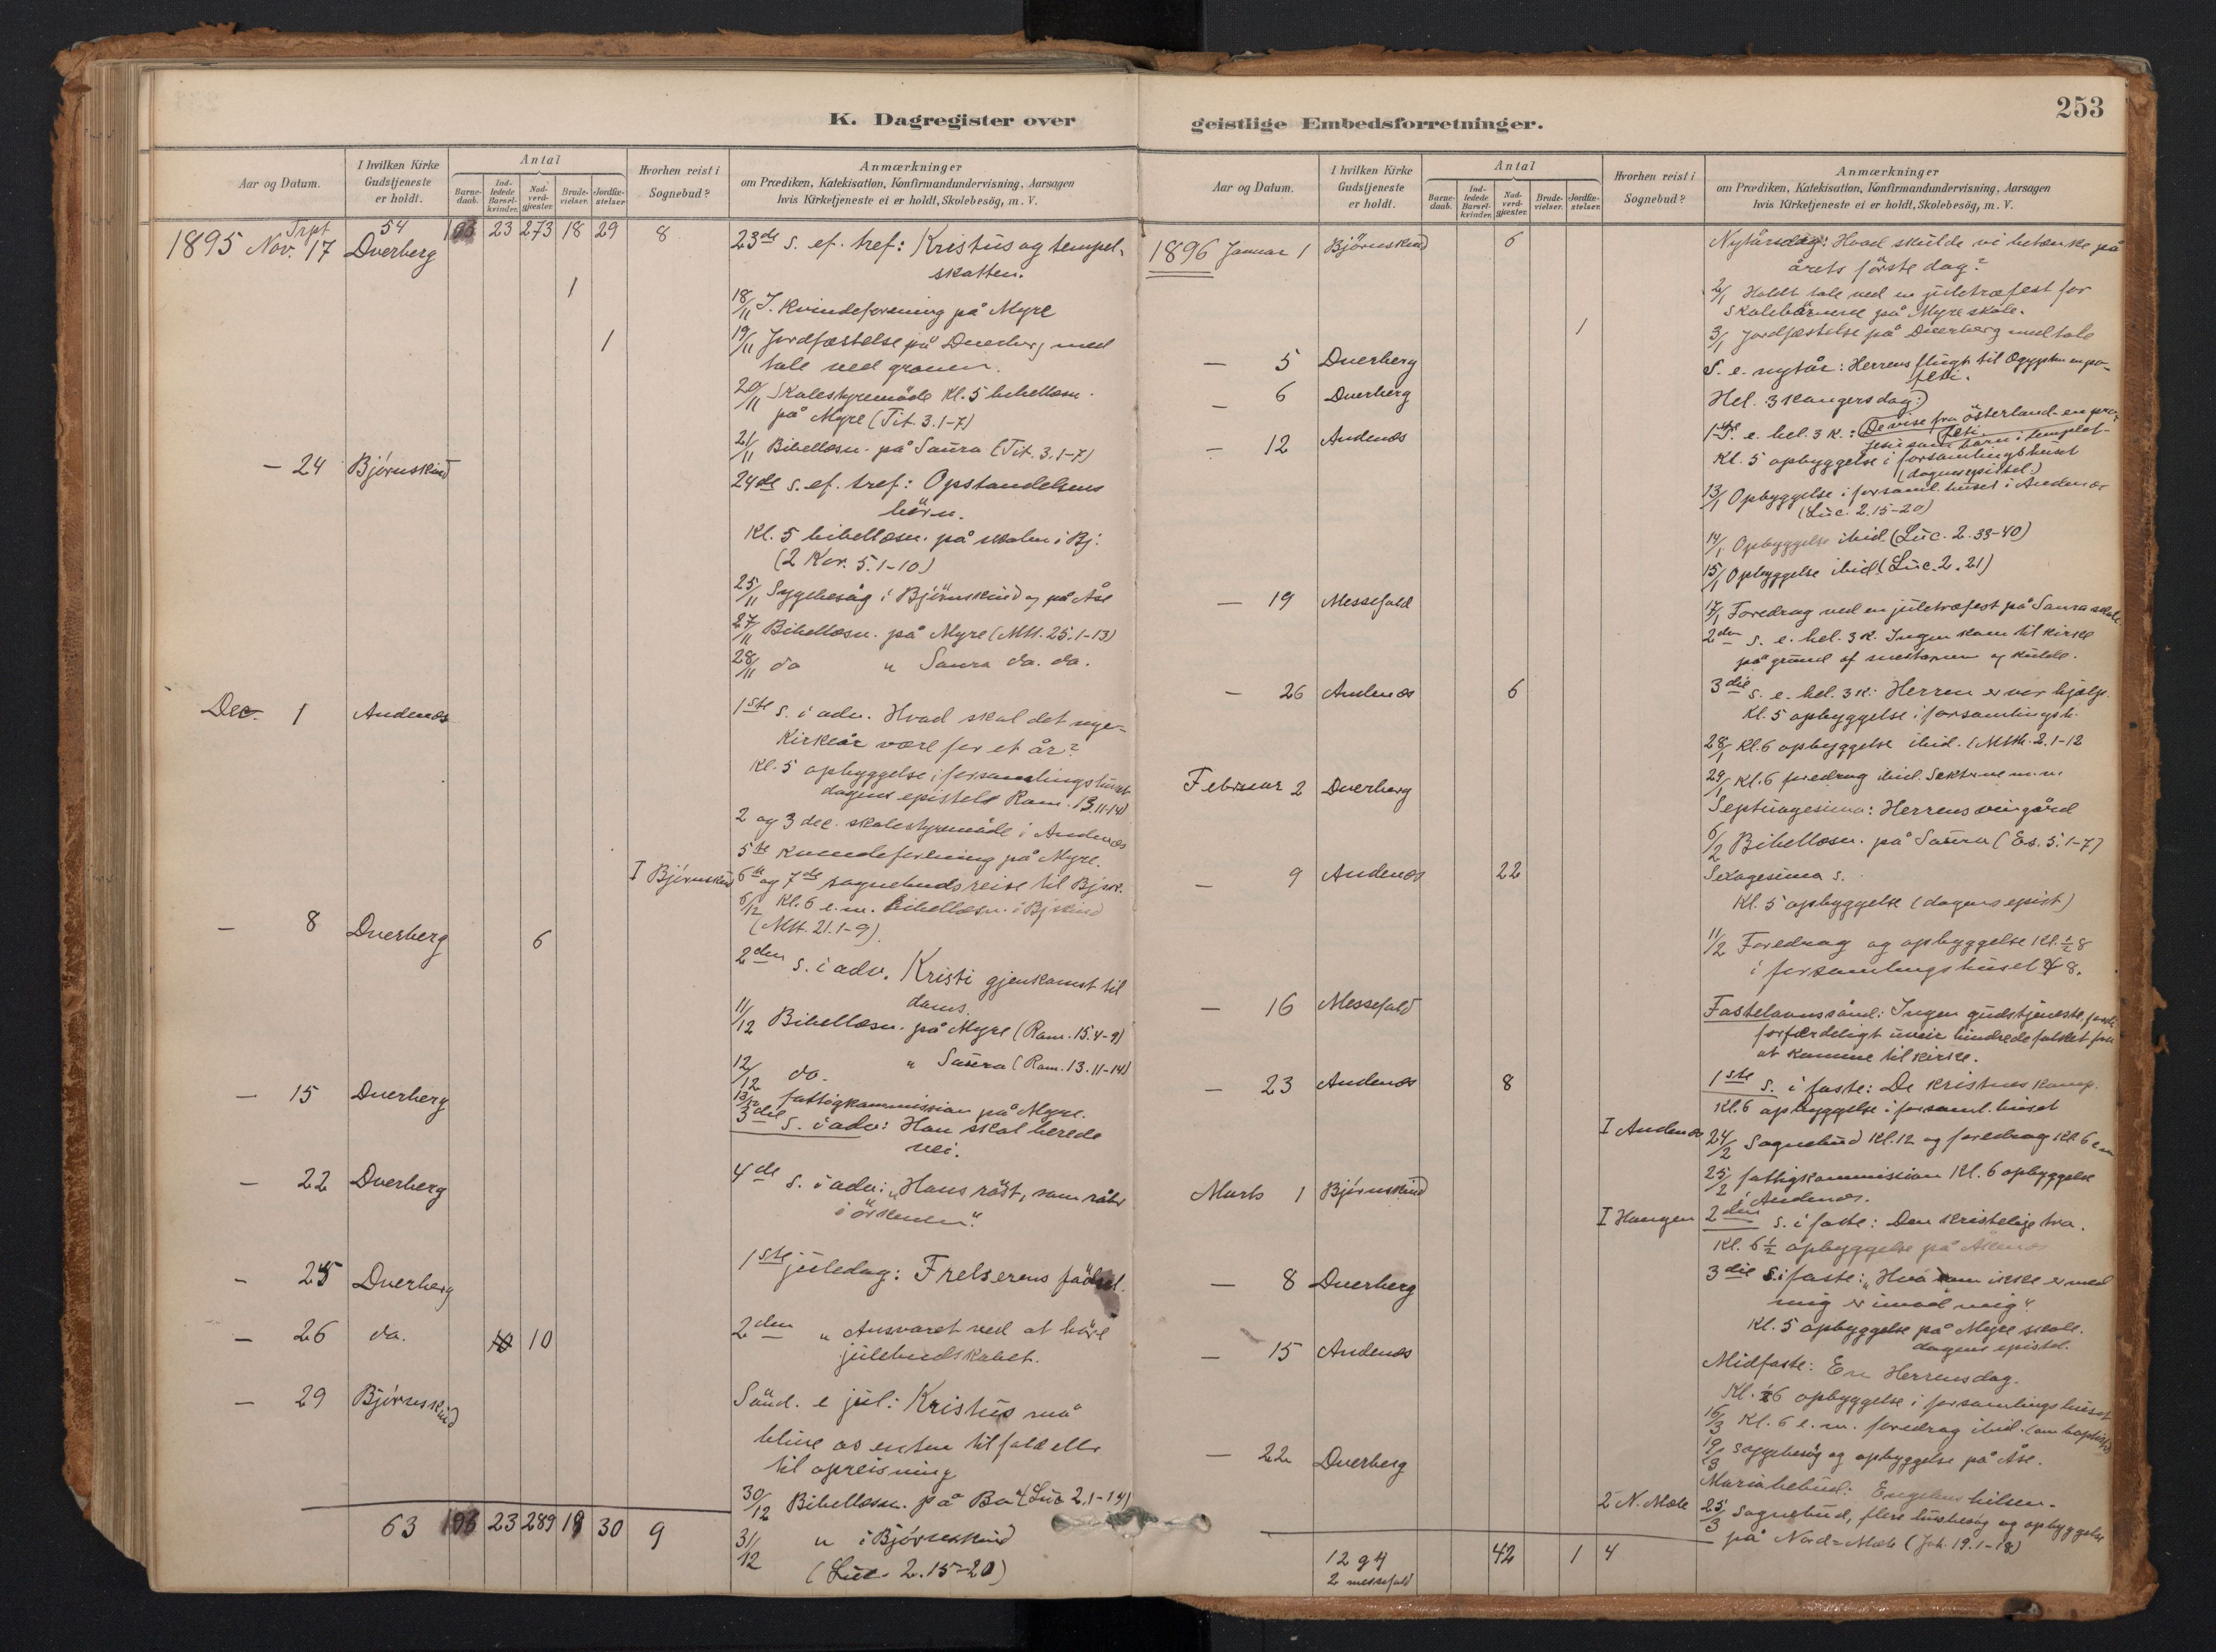 253
K. Dagregister over
geistlige Embedsforretninger.
Aar og Datum.
I hvilken Kirke Gudstjeneste er holdt.
Antal
Barne-daab.
Ind-ledede Barsel-kvinder.
Nad-verd-gjester.
Brude-vielser.
Jordfæ-stelser.
Hvorhen reist i Sognebud?
Anmærkninger
om Prædiken, Katekisation, Konfirmandundervisning, Aarsagen
hvis Kirketjeneste ei er holdt, Skolebesøg, m. V.
Trpt 54 103 23 273 18 29 8
1895 Nov. 17 Dverberg 23de s. ef. tref: Kristus og tempel-
skatten.
1
18/11 I. Kvindeforening på Myre
1 19/11 Jordfæstelse på Dverberg med
tale ved graven.
20/11 Skolestyremöde Kl. 5 bibellæsn.
på Myre (Tit. 3.1-7)
21/11 Bibellæsn. på Saura (Tit. 3.1-7)
— 24 Bjørnskind 24de s. ef. tref: Opstandelsens
börn.
Kl. 5 bibellæsn. på skolen i Bj.
(2 Kor. 5.1-10)
25/11 Sygebesög i Björnskind og på Åse
27/11 Bibellæsn. på Myre (Mtt. 25.1-13)
28/11 do " Saura do. do.
Dec. 1 Andenæs 1ste s. i adv. Hvad skal det nye
Kirkeår være for et år?
Kl. 5 opbyggelse i forsamlingshuset
dagens epistel Rom. 13.11-14)
2 og 3 dec. skolestyremöde i Andenæs
5te Kvindeforening på Myre.
I Bjørnskind 6te og 7de sognebudsreise til Bjsk.
6/12 Kl. 6 e.m. bibellæsn. i Bjskind
(Mtt. 21.1-9)
— 8 Dverberg 6
2den s. i adv. Kristi gjenkomst til
doms.
11/12 Bibellæsn. på Myre (Rom. 15.4-9)
12/12 do. " Saura (Rom. 13.11-14)
13/12 fattigkommission på Myre.
— 15 Dverberg 3die s. i adv: Han skal berede
vei.
— 22 Dverberg 4de s. i adv: "Hans röst, som råber
i örkenen".
— 25 Dverberg 1ste juledag: Frelserens födsel.
— 26 do. 10 10 2den " Ansvaret ved at höre
julebudskabet.
— 29 Bjørnskind Sönd. e jul: Kristus må
blive os enten til fald eller
til opreisning
30/12 Bibellæsn. på (Luc 2.1-14)
63 103 23 289 19 30 9
31/12 " i Bjørnskind
(Luc. 2.15-20)
Aar og Datum.
I hvilken Kirke Gudstjeneste er holdt.
Antal
Barne-daab.
Ind-ledede Barsel-kvinder.
Nad-verd-gjester.
Brude-vielser.
Jordfæ-stelser.
Hvorhen reist i Sognebud?
Anmærkninger
om Prædiken, Katekisation, Konfirmandundervisning, Aarsagen
hvis Kirketjeneste ei er holdt, Skolebesøg, m. V.
1896 Januar 1 Bjørnskind 6 Nytårsdag: Hvad skulde vi betænke på
årets förste dag?
2/1 Holdt tale ved en juletræfest for
skolebörnene på Myre skole.
1 3/1 Jordfæstelse på Dverberg med tale
— 5 Dverberg S. e. nytår: Herrens flugt til Ægypten en pro-
feti.
— 6 Dverberg Hel. 3 Kongers dag:
De vise fra österland en pro-
feti.
— 12 Andenæs 1ste s. e. hel. 3 K.: Jesus som barn i templet
Kl. 5 opbyggelse i forsamlingshuset
(dagens epistel.)
13/1 Opbyggelse i forsaml. huset i Andenæs
(Luc. 2.15-20)
14/1 Opbyggelse ibid (Luc. 2.33-40)
15/1 Opbyggelse ibid (Luc. 2.21)
17/1 Foredrag ved en juletræfest på Saura skole
— 19 Messefald 2den s. e. hel. 3 K. Ingen kom til kirke
på grund af snestorm og kulde.
— 26 Andenæs 6 3die s. e. hel. 3 K: Herren er vor hjælp.
Kl. 5 opbyggelse i forsamlingsh.
28/1 Kl. 6 opbyggelse ibid. (Mtth. 2.1-12
29/1 Kl. 6 foredrag ibid. Sekterne m.m.
Februar 2 Dverberg Septuagesima: Herrens vingård
6/2 Bibellæsn. på Saura (Es. 5.1-7)
— 9 Andenæs 22 Sexagesima s.
Kl. 5 opbyggelse (dagens epist)
11/2 Foredrag og opbyggelse Kl. ½ 8
i forsamlingshuset 8.
— 16 Messefald Fastelavnssönd: Ingen gudstjeneste, fordi
forfærdeligt uveir hindrede folket fra
at komme til kirke.
— 23 Andenæs 8 1ste s. i faste: De Kristnes kamp.
Kl. 6 opbyggelse i forsaml. huset
I Andenæs 24/2 Sognebud Kl. 12 og foredrag Kl. 6 e m
25/2 fattigkommission Kl. 6 opbyggelse
i Andenæs.
Marts 1 Bjørnskind I Haugen 2den s. i faste: Den kristelige tro.
Kl. 6½ opbyggelse på Åknes
— 8 Dverberg 3die s. i faste: "Hvo som ikke er med
mig er imod mig".
Kl. 5 opbyggelse på Myre skole.
dagens epistel.
— 15 Andenæs Midfaste: En Herrens dag.
Kl. 6 opbyggelse i forsamlingshuset
16/3 Kl. 6 e. m. foredrag ibid. (om baptist
19/3 Sygebesög og opbyggelse på Åse.
— 22 Dverberg Mariæbebud: Engelens hilsen.
2 N. Mæle 25/3 Sognebud, flere husbesög og opbyggelse
på Nord-Mæle (Joh. 19.1-18)
12 gtj 42 1 4
2 messefald